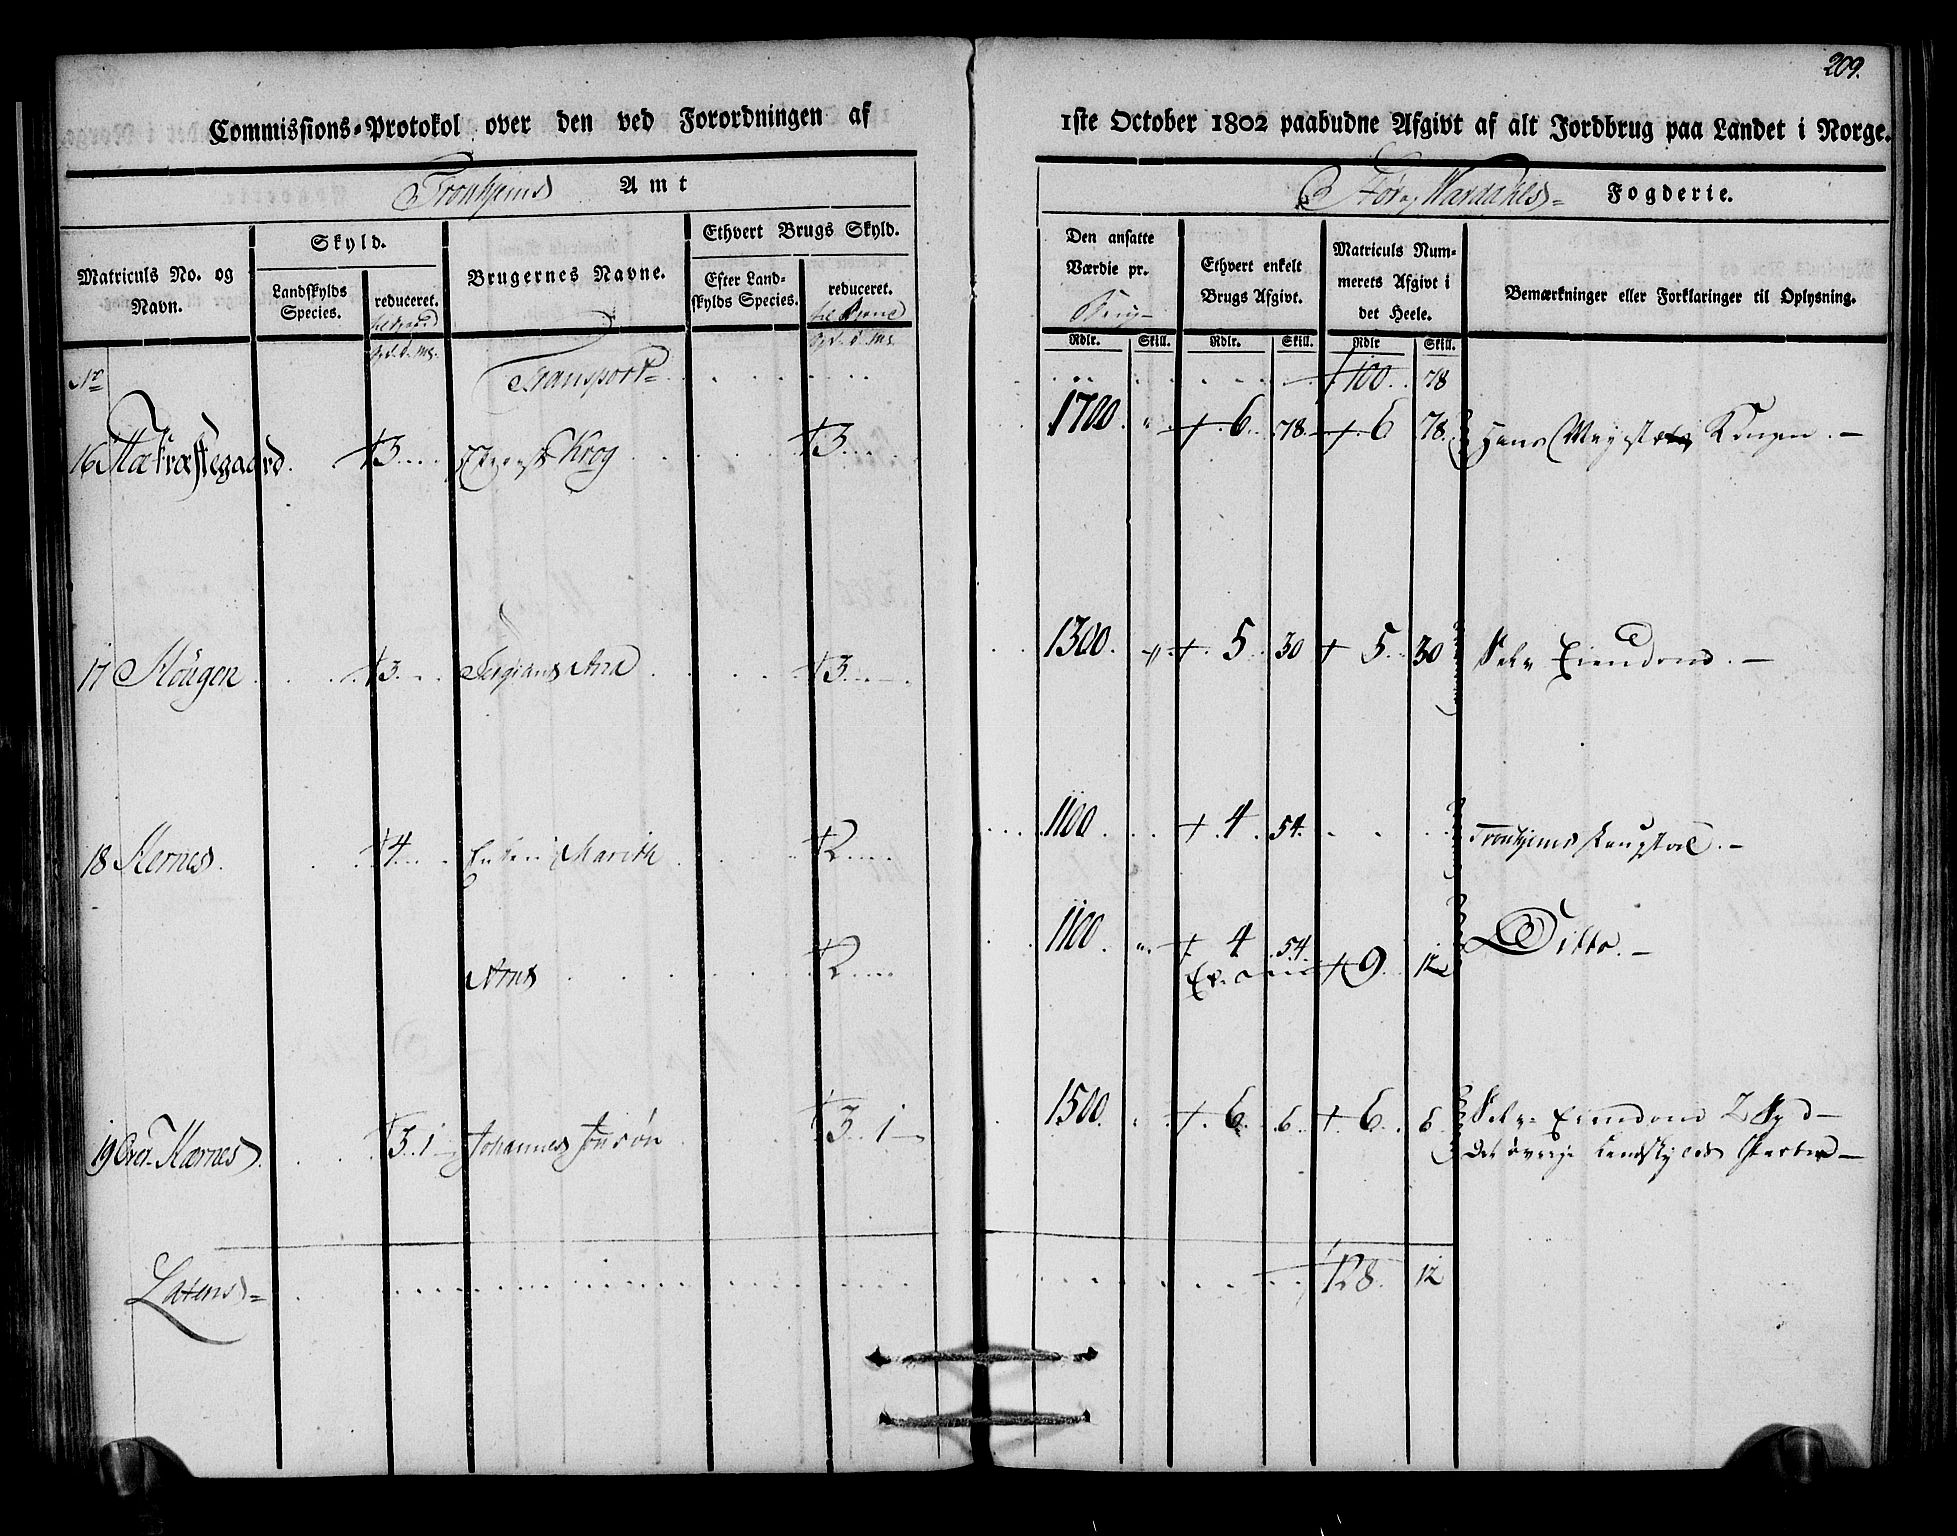 209.
Commissions-Protokol over den ved Forordningen af
1ste October 1802 paabudne Afgivt af alt Jordbrug paa Landet i Norge.
Tronhjems Amt
Fogderie.
Matriculs No. og Navn.
Skyld.
Landskylds Species.
reduceret.
Brugernes Navne.
Ethvert Brugs Skyld.
Efter Landskylds Species.
reduceret.
Den ansatte Værdie pr.
Brug
Ethvert enkelt Brugs Afgivt.
Matriculs Nummerets Afgivt i det Heele.
Bemærkninger eller Forklaringer til Oplysning.
Rdlr. Skill. Rdlr. Skill. Rdlr Skill.
No Transport 100. 78
16 3 Krog 3 1700. 6. 78. 6 78. Hans Kongen.
17 Hougen 3 3 1300. 5 30 5. 30 Selv Eiendom.
18 Kernes. 4 Marith 2 1100. 4. 54. Tronhjems
Arnt 2 1100. 4 54 9. 12 Ditto.
19 Over-Kærnes. 3. 1 Johannes 3. 1 1500. 6. 6. 6. 6 Selv Eiendom
Det øvrige Landskylds
Latens 128. 12